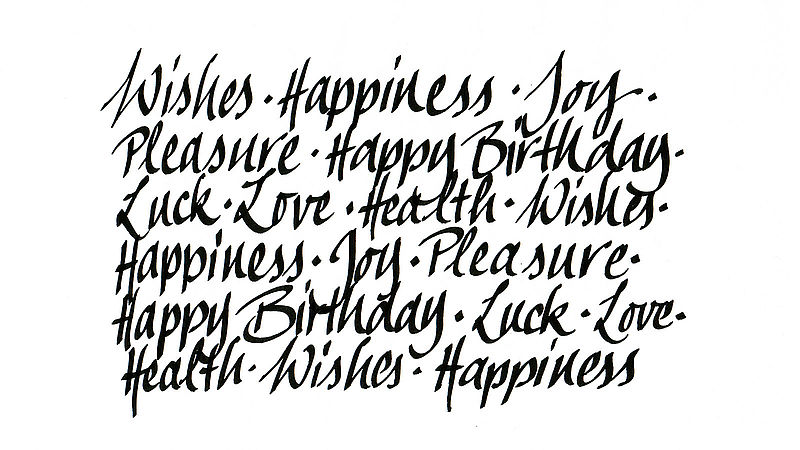 Wishes · Happiness · Joy ·
Pleasure · Happy Birthday ·
Luck · Love · Health · Wishes ·
Happiness · Joy · Pleasure ·
Happy Birthday · Luck · Love ·
Health · Wishes · Happiness